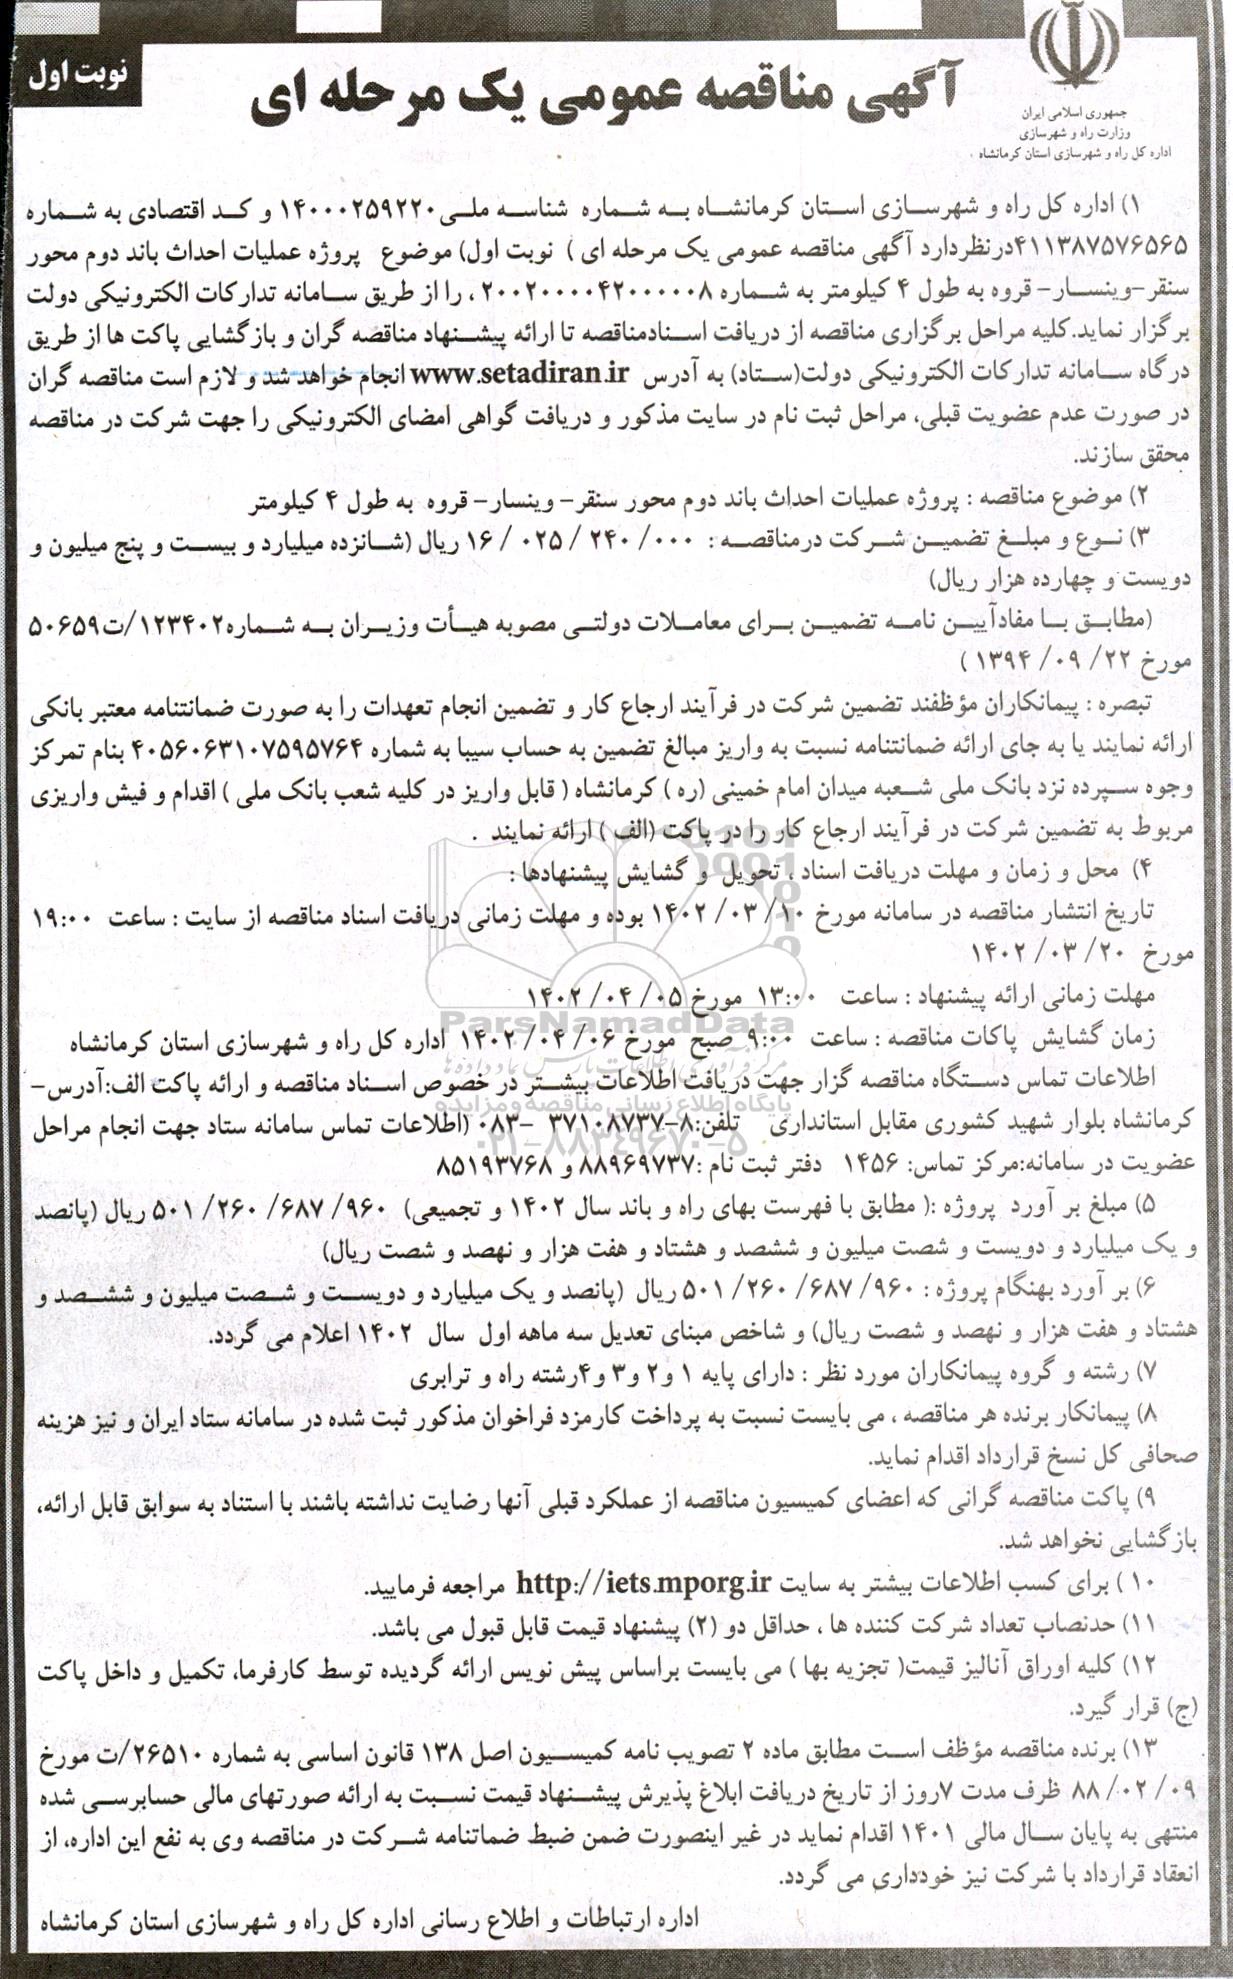 نوبت اول
آگهی مناقصه عمومی یک مرحله ای
جمهوری اسلامی ایران
وزارت راه و شهرسازی
اداره کل راه و شهرسازی استان کرمانشاه
۱) اداره کل راه و شهرسازی استان کرمانشاه به شماره شناسه ملی ۱۴۰۰۰۲۵۹۲۲۰ و کد اقتصادی به شماره
۴۱۱۳۸۷۵۷۶۵۶۵ درنظردارد آگهی مناقصه عمومی یک مرحله ای ) نوبت اول) موضوع پروژه عملیات احداث باند دوم محور
سنقر-وینسار- قروه به طول ۴ کیلومتر به شماره ۲۰۰۲۰۰۰۰۴۲۰۰۰۰۰۸ ، را از طریق سامانه تدارکات الکترونیکی دولت
برگزار نماید.کلیه مراحل برگزاری مناقصه از دریافت اسنادمناقصه تا ارائه پیشنهاد مناقصه گران و بازگشایی پاکت ها از طریق
درگاه سامانه تدارکات الکترونیکی دولت(ستاد) به آدرس www.setadiran.ir انجام خواهد شد و لازم است مناقصه گران
در صورت عدم عضویت قبلی، مراحل ثبت نام در سایت مذکور و دریافت گواهی امضای الکترونیکی را جهت شرکت در مناقصه
محقق سازند.
۲) موضوع مناقصه : پروژه عملیات احداث باند دوم محور سنقر- وینسار- قروه به طول ۴ کیلومتر
۳) نوع و مبلغ تضمین شرکت درمناقصه : ۰۰۰/ ۲۴۰/ ۰۲۵/ ۱۶ ریال (شانزده میلیارد و بیست و پنج میلیون و
دویست و چهارده هزار ریال)
(مطابق با مفادآیین نامه تضمین برای معاملات دولتی مصوبه هیأت وزیران به شماره۱۲۳۴۰۲/ت۵۰۶۵۹
مورخ ۲۲/ ۰۹/ ۱۳۹۴ )
تبصره : پیمانکاران مؤظفند تضمین شرکت در فرآیند ارجاع کار و تضمین انجام تعهدات را به صورت ضمانتنامه معتبر بانکی
ارائه نمایند یا به جای ارائه ضمانتنامه نسبت به واریز مبالغ تضمین به حساب سیبا به شماره ۴۰۵۶۰۶۳۱۰۷۵۹۵۷۶۴ بنام تمرکز
وجوه سپرده نزد بانک ملی شعبه میدان امام خمینی (ره ) کرمانشاه ( قابل واریز در کلیه شعب بانک ملی ) اقدام و فیش واریزی
مربوط به تضمین شرکت در فرآیند ارجاع کار را در پاکت (الف ) ارائه نمایند .
۴) محل و زمان و مهلت دریافت اسناد ، تحویل و گشایش پیشنهادها :
تاریخ انتشار مناقصه در سامانه مورخ ۱۰/ ۰۳/ ۱۴۰۲ بوده و مهلت زمانی دریافت اسناد مناقصه از سایت : ساعت ۱۹:۰۰
مورخ ۲۰/ ۰۳/ ۱۴۰۲
مهلت زمانی ارائه پیشنهاد : ساعت ۱۳:۰۰ مورخ ۰۵/ ۰۴/ ۱۴۰۲
ParsNamadData
زمان گشایش پاکات مناقصه : ساعت ۹:۰۰ صبح مورخ ۰۶/ ۰۴/ ۱۴۰۲ اداره کل راه و شهرسازی استان کرمانشاه
اطلاعات تماس دستگاه مناقصه گزار جهت دریافت اطلاعات بیشتر در خصوص اسناد مناقصه و ارائه پاکت الف:آدرس-
پایگاه اطلاع رسانی مناقصه و مزایده
کرمانشاه بلوار شهید کشوری مقابل استانداری تلفن:۸-۳۷۱۰۸۷۳۷ -۰۸۳ (اطلاعات تماس سامانه ستاد جهت انجام مراحل
۰۲۱-۸۸۳۴۹۶۷۰-۵
عضویت در سامانه:مرکز تماس: ۱۴۵۶ دفتر ثبت نام :۸۸۹۶۹۷۳۷ و ۸۵۱۹۳۷۶۸
۵) مبلغ بر آورد پروژه :( مطابق با فهرست بهای راه و باند سال ۱۴۰۲ و تجمیعی) ۹۶۰/ ۶۸۷/ ۲۶۰/ ۵۰۱ ریال (پانصد
و یک میلیارد و دویست و شصت میلیون و ششصد و هشتاد و هفت هزار و نهصد و شصت ریال)
۶) بر آورد بهنگام پروژه : ۹۶۰/ ۶۸۷/ ۲۶۰/ ۵۰۱ ریال (پانصد و یک میلیارد و دویست و شصت میلیون و ششصد و
هشتاد و هفت هزار و نهصد و شصت ریال) و شاخص مبنای تعدیل سه ماهه اول سال ۱۴۰۲ اعلام می گردد.
۷) رشته و گروه پیمانکاران مورد نظر : دارای پایه ۱ و۲ و۳ و۴رشته راه و ترابری
۸) پیمانکار برنده هر مناقصه ، می بایست نسبت به پرداخت کارمزد فراخوان مذکور ثبت شده در سامانه ستاد ایران و نیز هزینه
صحافی کل نسخ قرارداد اقدام نماید.
۹) پاکت مناقصه گرانی که اعضای کمیسیون مناقصه از عملکرد قبلی آنها رضایت نداشته باشند با استناد به سوابق قابل ارائه،
بازگشایی نخواهد شد.
۱۰ ) برای کسب اطلاعات بیشتر به سایت http://iets.mporg.ir مراجعه فرمایید.
۱۱) حدنصاب تعداد شرکت کننده ها ، حداقل دو (۲) پیشنهاد قیمت قابل قبول می باشد.
۱۲) کلیه اوراق آنالیز قیمت( تجزیه بها ) می بایست براساس پیش نویس ارائه گردیده توسط کارفرما، تکمیل و داخل پاکت
(ج) قرار گیرد.
۱۳) برنده مناقصه مؤظف است مطابق ماده ۲ تصویب نامه کمیسیون اصل ۱۳۸ قانون اساسی به شماره ۲۶۵۱۰/ت مورخ
۰۹/ ۰۲/ ۸۸ ظرف مدت ۷روز از تاریخ دریافت ابلاغ پذیرش پیشنهاد قیمت نسبت به ارائه صورتهای مالی حسابرسی شده
منتهی به پایان سال مالی ۱۴۰۱ اقدام نماید در غیر اینصورت ضمن ضبط ضماتنامه شرکت در مناقصه وی به نفع این اداره، از
انعقاد قرارداد با شرکت نیز خودداری می گردد.
اداره ارتباطات و اطلاع رسانی اداره کل راه و شهرسازی استان کرمانشاه